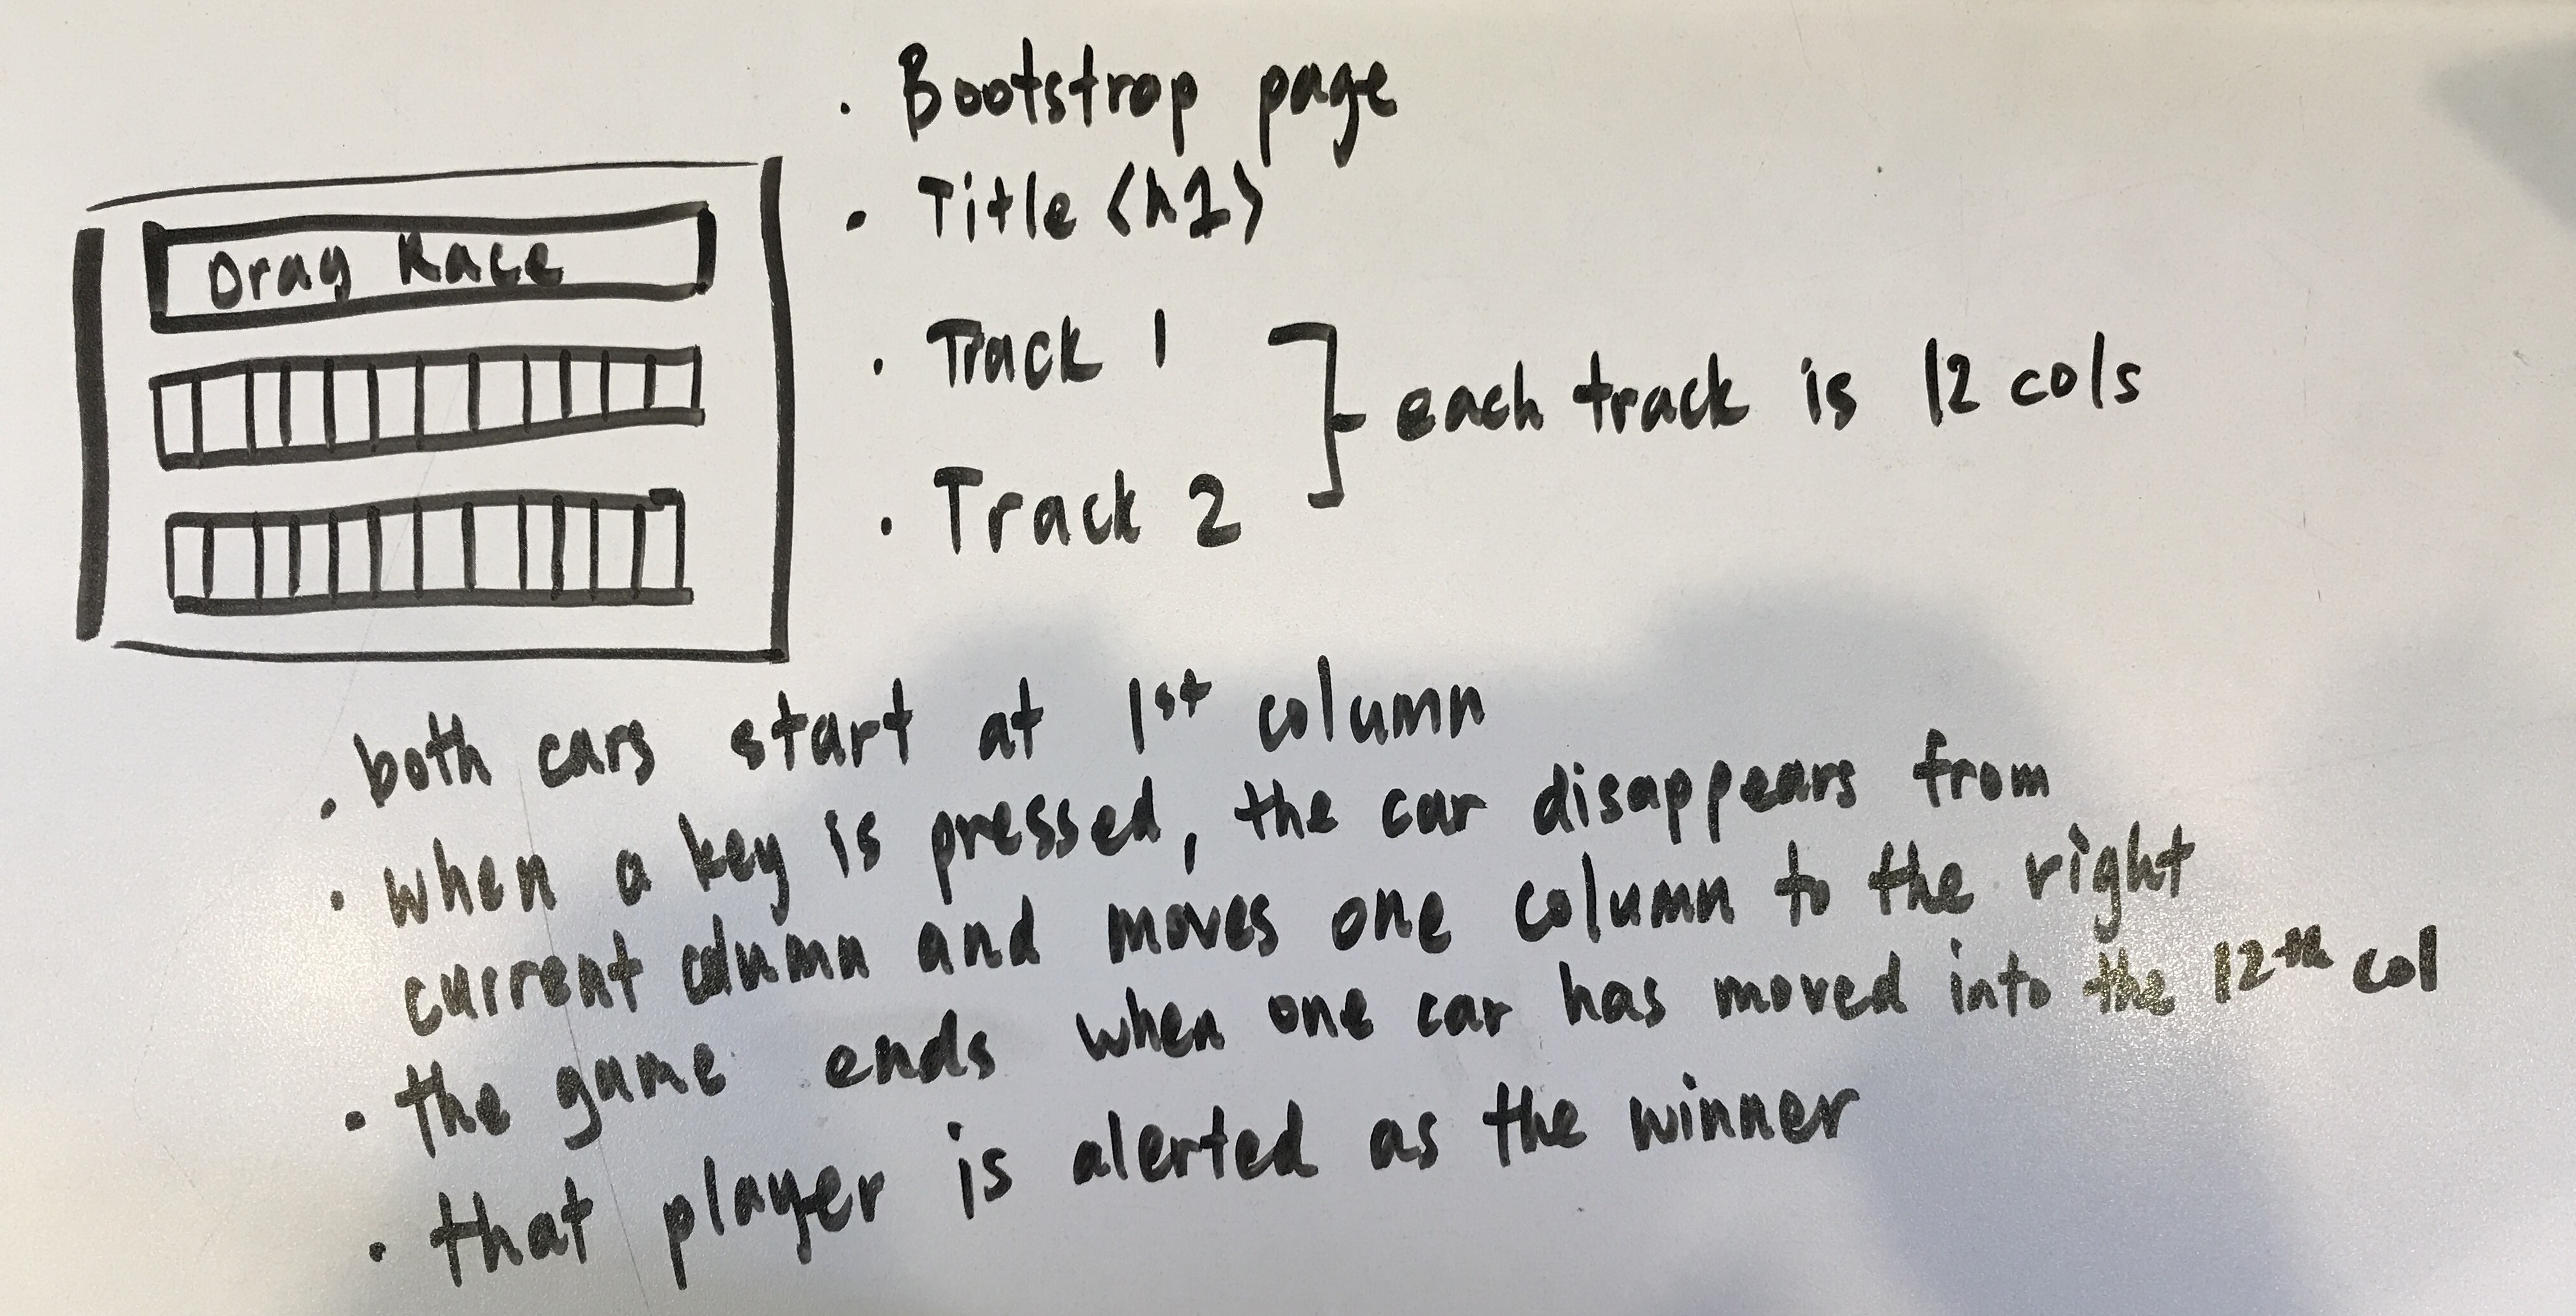 · Bootstrap page
· Title <h1>
Drag Race
· Track 1
each track is 12 cols
· Track 2
· both cars start at 1st column
· when a key is pressed, the car disappears from
current column and moves one column to the right
· the game ends when one car has moved into the 12th col
· that player is alerted as the winner